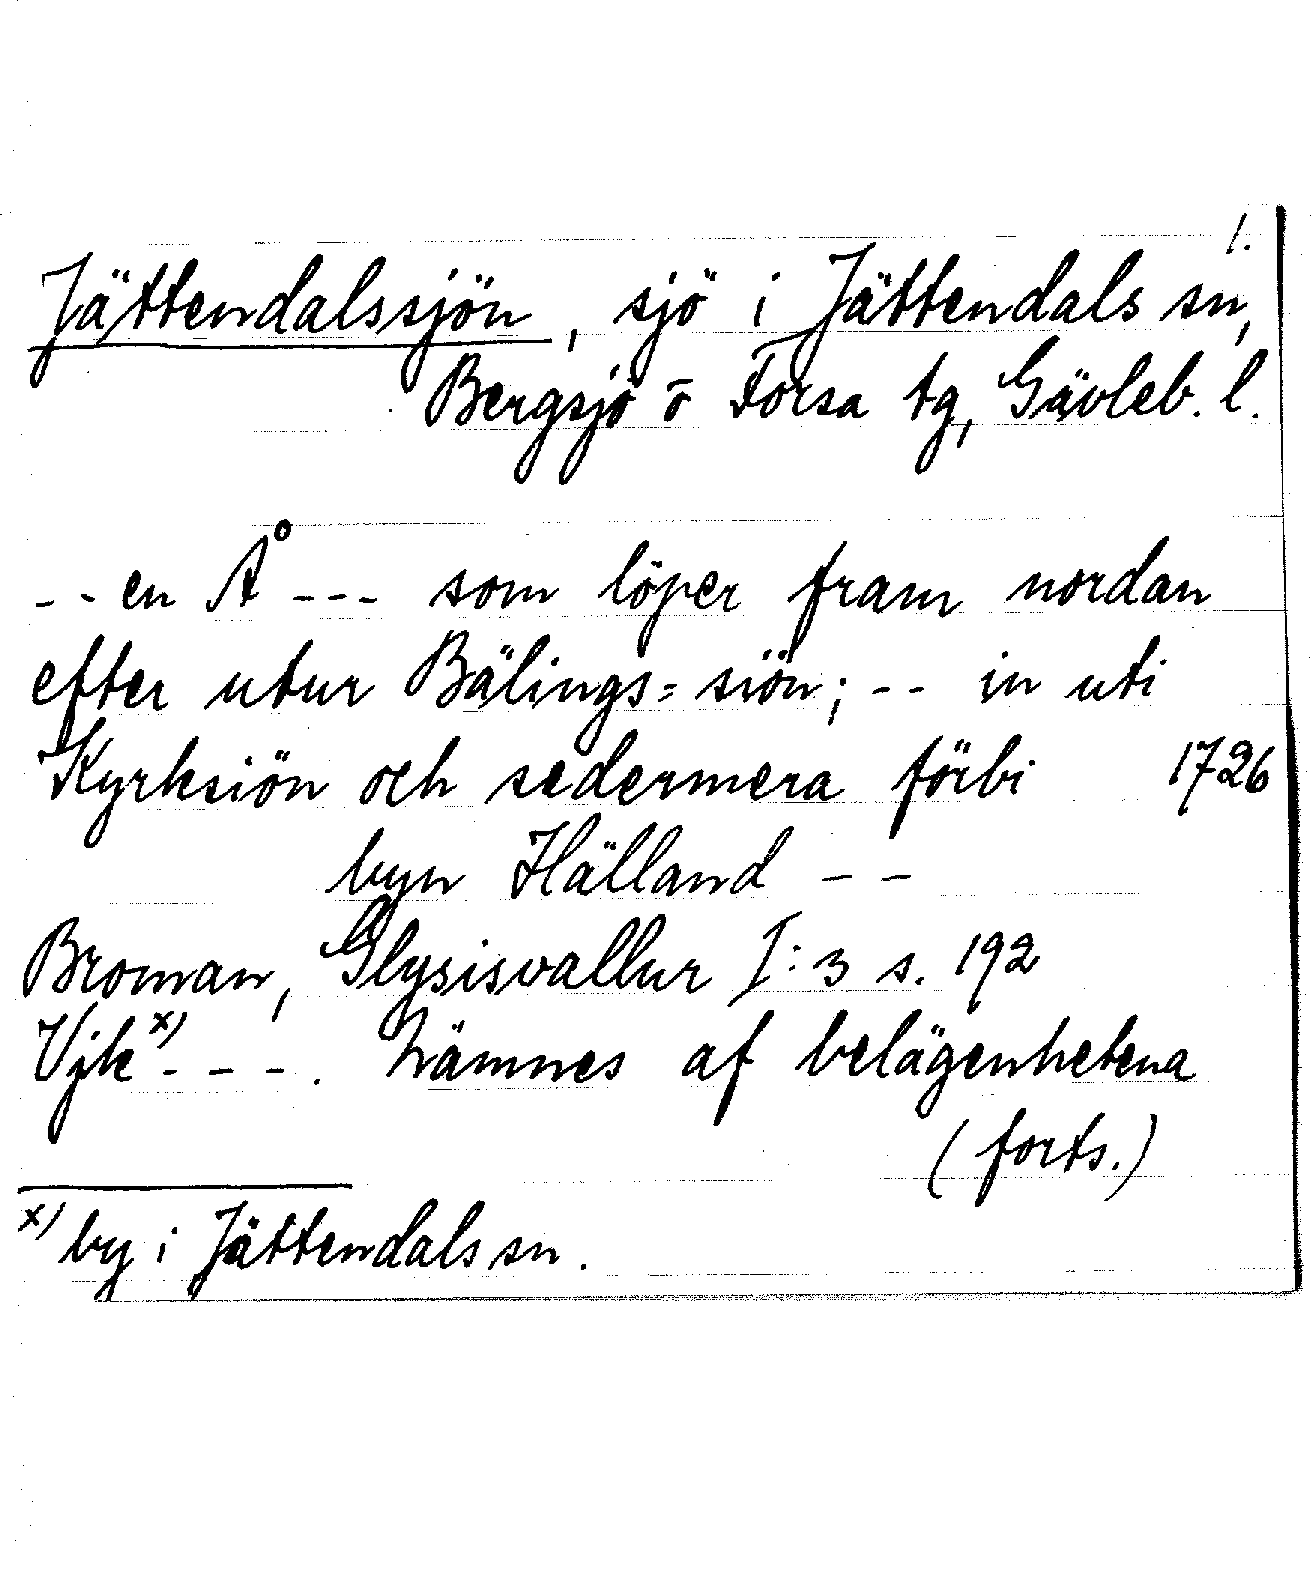 1.
Jättendalssjön, sjö i Jättendals sn,
Bergsjö o Forsa tg, Gävleb. l.
-- en Å --- som löper fram nordan
efter utur Bälings= siön; -- in uti
Kyrksiön och sedermera förbi 1726
byn Hälland --
Broman, Glysisvallur I:3 s. 192
Vjk x) - - - . Nämnes af belägenhetena
(forts.)
x) by i Jättendals sn.